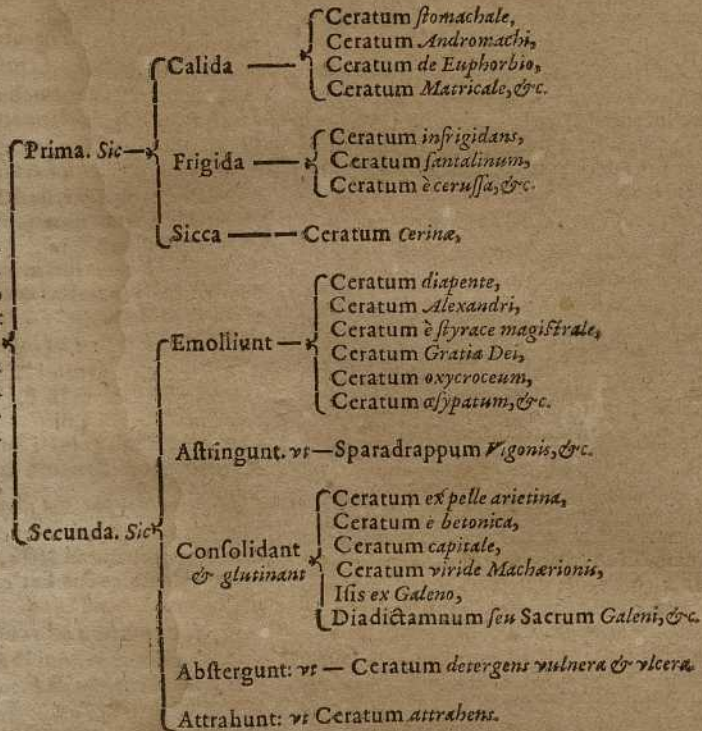 Ceratum ſtomachale,
Ceratum Andromachi,
Calida
Ceratum de Euphorbio,
Ceratum Matricale, &c.
Prima. Sic
Ceratum infrigidans,
Frigida
Ceratum ſantalinum,
Ceratum è ceruſſa, &c.
Sicca Ceratum Cerinæ,
Ceratum diapente,
Ceratum Alexandri,
Ceratum è ſtyrace magiſtrale,
Emolliunt
Ceratum Gratia Dei,
Ceratum oxycroceum,
Ceratum œſypatum, &c.
Aſtringunt. vt Sparadrappum Vigonis, &c.
Secunda. Sic
Ceratum ex pelle arietina,
Ceratum è betonica,
Conſolidant
Ceratum capitale,
& glutinant
Ceratum viride Machærionis,
Iſis ex Galeno,
Diadictamnum ſeu Sacrum Galeni, &c.
Abſtergunt: vt Ceratum detergens vulnera & vlcera
Attrahunt: vt Ceratum attrahens.